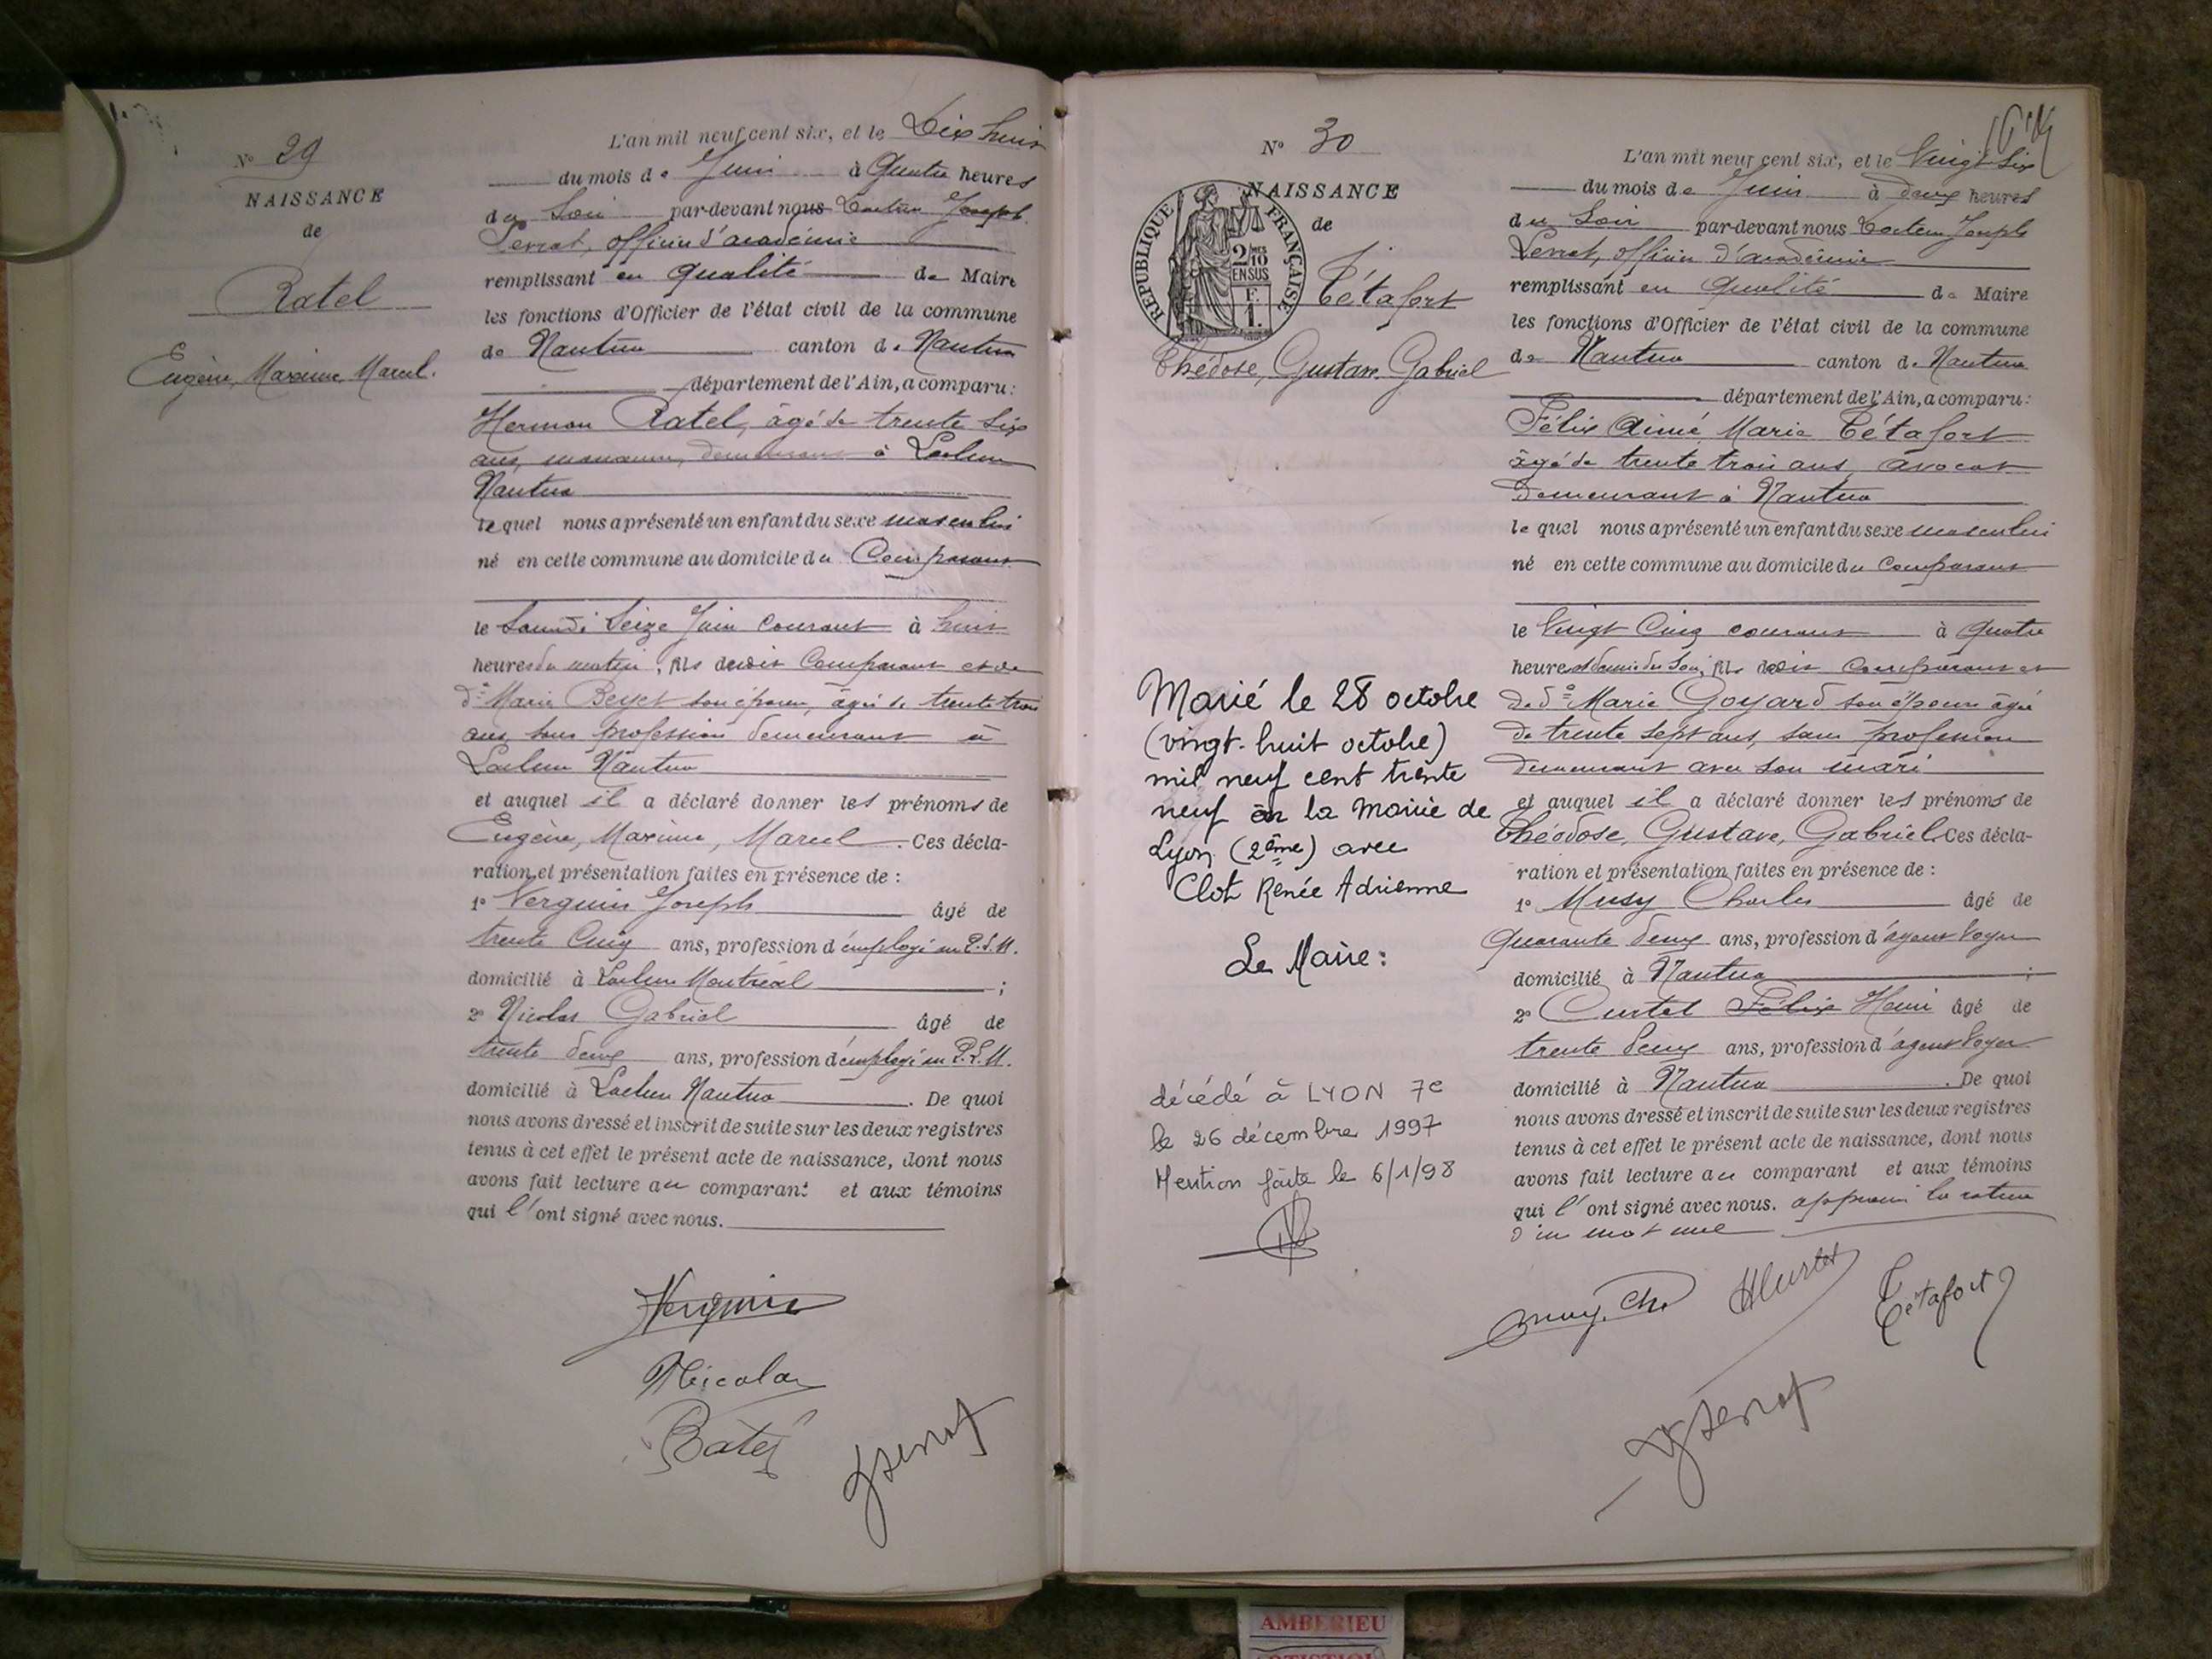 Nº 29
NAISSANCE
de
Ratel
Eugène, Maxime, Marcel.
L'an mil neuf cent six, et le Dix huit
du mois de Juin à Quatre heures
du Soir par-devant nous Docteur Joseph
Serrat, officier d'académie
remplissant en qualité de Maire
les fonctions d'Officier de l'état civil de la commune
de Nantua canton de Nantua
département de l'Ain, a comparu :
Hermon Ratel, âgé de trente six
ans, manœuvre, demeurant à Lacluse
Nantua
le quel nous a présenté un enfant du sexe masculin
né en cette commune au domicile du Comparant
le Samedi Seize Juin Courant à huit
heures du matin, fils dudit Comparant et de
dᵉ Marie Beyet son épouse, âgée de trente trois
ans, sans profession demeurant à
Lacluse Nantua
et auquel il a déclaré donner les prénoms de
Eugène, Maxime, Marcel. Ces décla-
ration et présentation faites en présence de :
1º Verguin Joseph âgé de
trente Cinq ans, profession d'employé au P.L.M.
domicilié à Lacluse Montréal ;
2º Nicolas Gabriel âgé de
trente deux ans, profession d'employé au P.L.M.
domicilié à Lacluse Nantua. De quoi
nous avons dressé et inscrit de suite sur les deux registres
tenus à cet effet le présent acte de naissance, dont nous
avons fait lecture au comparant et aux témoins
qui l'ont signé avec nous.
Verguin
Nicolas
Ratel
Nº 30
NAISSANCE
de
REPUBLIQUE FRANÇAISE
2/10 MES
EN SUS
F.
1.
Tétafort
Théodose, Gustave, Gabriel
L'an mil neuf cent six, et le Vingt Six
du mois de Juin à deux heures
du Soir par-devant nous Docteur Joseph
Serrat, officier d'académie
remplissant en qualité de Maire
les fonctions d'Officier de l'état civil de la commune
de Nantua canton de Nantua
département de l'Ain, a comparu :
Félix Aimé Marie Tétafort
âgé de trente trois ans, avocat
demeurant à Nantua
le quel nous a présenté un enfant du sexe masculin
né en cette commune au domicile du Comparant
le Vingt Cinq courant à quatre
heures et demie du Soir, fils dudit Comparant et
de dᵉ Marie Goyard son épouse âgée
de trente sept ans, sans profession
demeurant avec son mari
et auquel il a déclaré donner les prénoms de
Théodose, Gustave, Gabriel. Ces décla-
ration et présentation faites en présence de :
1º Musy Charles âgé de
Quarante deux ans, profession d'agent Voyer
domicilié à Nantua ;
2º Curtet Félix Henri âgé de
trente deux ans, profession d'agent Voyer
domicilié à Nantua. De quoi
nous avons dressé et inscrit de suite sur les deux registres
tenus à cet effet le présent acte de naissance, dont nous
avons fait lecture au comparant et aux témoins
qui l'ont signé avec nous. approuvé la rature
d'un mot nul
Musy Ch.
HCurtet
Tétafort
Marié le 28 octobre
(vingt-huit octobre)
mil neuf cent trente
neuf en la Mairie de
Lyon (2ème) avec
Clot Renée Adrienne
Le Maire :
décédé à LYON 7e
le 26 décembre 1997
Mention faite le 6/1/98
AMBERIEU